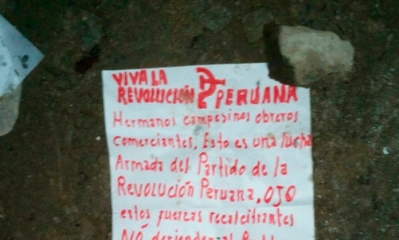 VIVA LA
REVOLUCIÓN PERUANA
Hermanos campesinos obreros
comerciantes. Esto es una lucha
Armada del Partido de la
Revolución Peruana, OJO
estos fuerzas recalcitrantes
NO defienden al